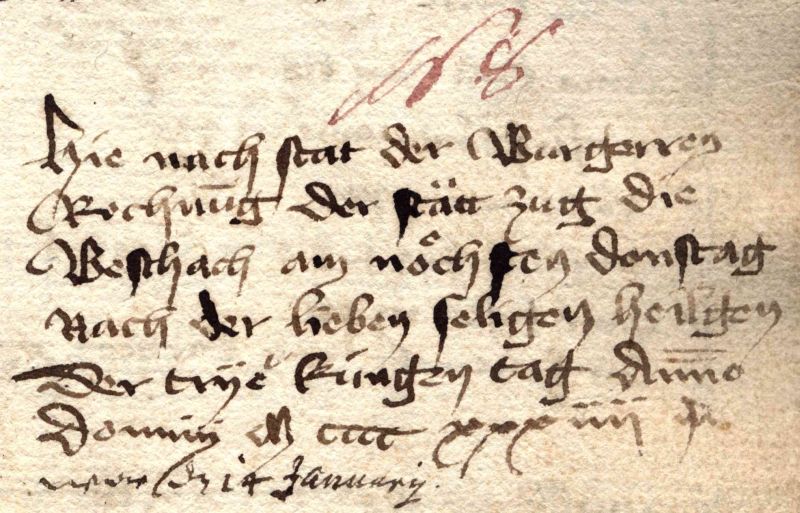 Hie nach stat der Burgerren
Rechnūg der stätt zug die
Beschach am nöchsten donstag
Nach der lieben seligen heiligen
Der trÿe küngen tag Anno
domini M cccc xxxiiii
were d 14 January.